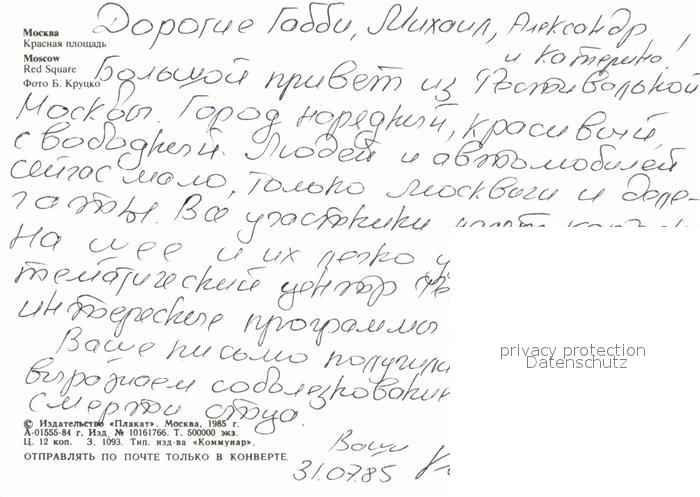 Москва
Красная площадь
Moscow
Red Square
Фото Б. Круцко
Дорогие Габби, Михаил, Александр
и Катерина!
Большой привет из Фестивальной
Москвы. Город нарядный, красивый
свободный. Людей и автомобилей
сейчас мало, только москвичи и деле-
гаты. Все участники
на шее и их легко
тематический центр
интересные программы
Ваше письмо получили
выражаем соболезнован
смерти отца.
Ваши
31.07.85
© Издательство «Плакат». Москва, 1985 г.
А-01555-84 г. Изд. № 10161766. Т. 500000 экз.
Ц. 12 коп. З. 1093. Тип. изд-ва «Коммунар».
ОТПРАВЛЯТЬ ПО ПОЧТЕ ТОЛЬКО В КОНВЕРТЕ.
privacy protection
Datenschutz